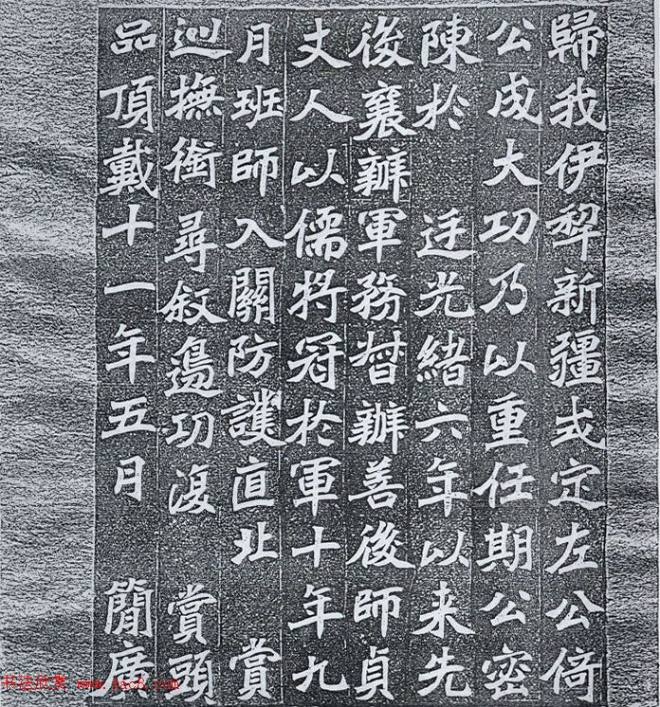 歸我伊犂新疆式定左公倚
公成大功乃以重任期公密
陳於 廷光緒六年以来先
後襄辦軍務督辦善後師貞
丈人以儒将冠於軍十年九
月班師入關防護直北 賞
巡撫銜尋敘邊功復 賞頭
品頂戴十一年五月 簡廣
书法欣赏 www.yac8.com